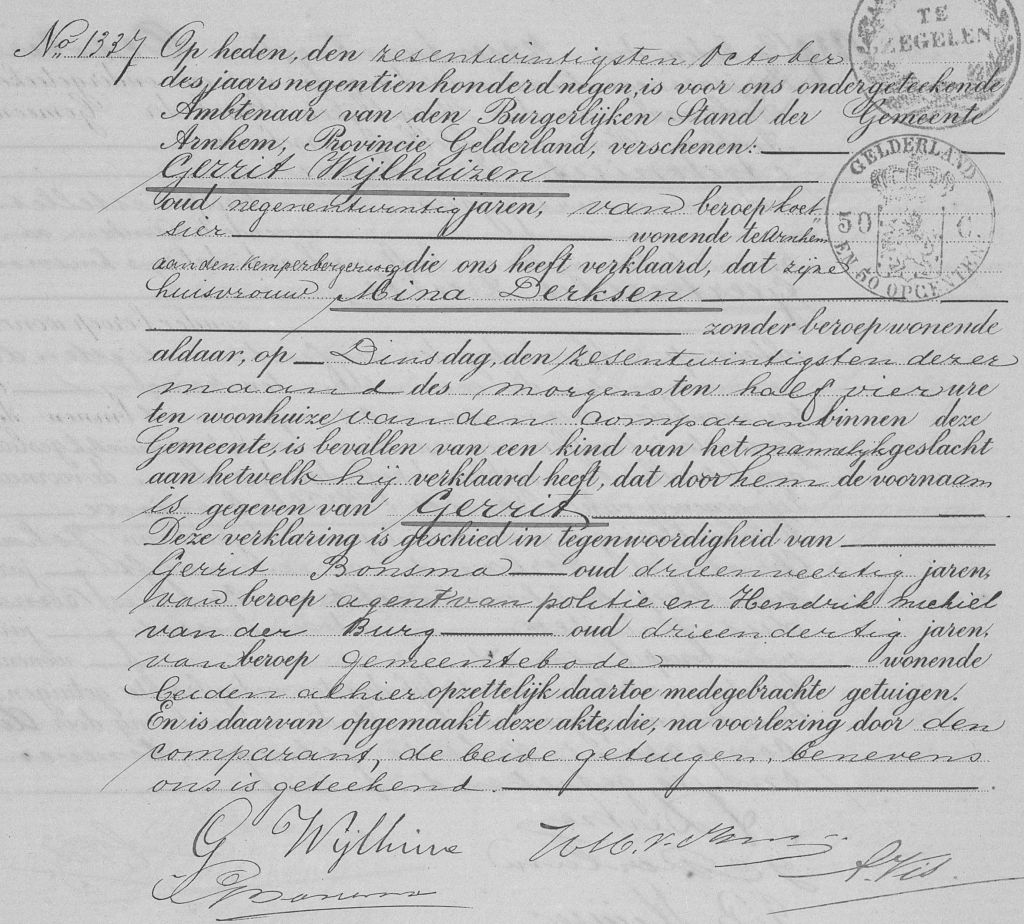 No. 1337 Op heden, den zesentwintigsten October
des jaars negentienhonderd negen, is voor ons ondergeteekende
Ambtenaar van den Burgerlijken Stand der Gemeente
Arnhem, Provincie Gelderland, verschenen:
Gerrit Wijlhuizen
oud negenentwintig jaren, van beroep koet-
sier wonende te Arnhem
aan den Kemperbergerweg die ons heeft verklaard, dat zijne
huisvrouw Mina Derksen
zonder beroep wonende
aldaar, op Dinsdag, den zesentwintigsten dezer
maand des morgens ten half vier ure
ten woonhuize van den comparant binnen deze
Gemeente, is bevallen van een kind van het mannelijk geslacht
aan hetwelk hij verklaard heeft, dat door hem de voornaam
is gegeven van Gerrit
Deze verklaring is geschied in tegenwoordigheid van
Gerrit Bonsma oud drieenveertig jaren,
van beroep agent van politie en Hendrik Michiel
van der Burg oud drieendertig jaren,
van beroep gemeentebode wonende
beiden alhier opzettelijk daartoe medegebrachte getuigen.
En is daarvan opgemaakt deze akte, die, na voorlezing door den
comparant, de beide getuigen, benevens
ons is geteekend.
TE
ZEGELEN
GELDERLAND
50 C.
EN 50 OPCENTEN
G Wijlhuize
A. Vis.